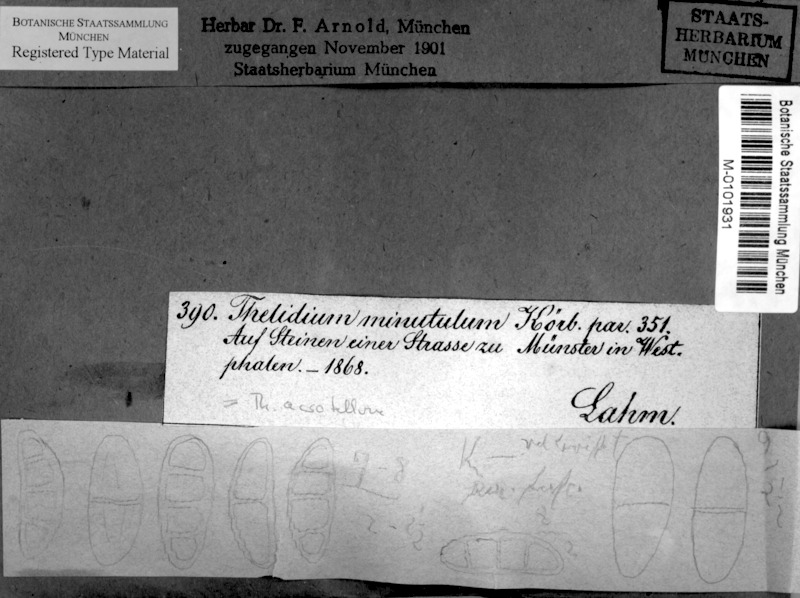 BOTANISCHE STAATSSAMMLUNG
MÜNCHEN
Registered Type Material
Herbar Dr. F. Arnold, München
zugegangen November 1901
Staatsherbarium München
STAATS-
HERBARIUM
MÜNCHEN
Botanische Staatssammlung München
M-0101931
390. Thelidium minutulum Körb. par. 351.
Auf Steinen einer Strasse zu Münster in West.
phalen. – 1868.
= Th.
Lahm.
7-8
K –